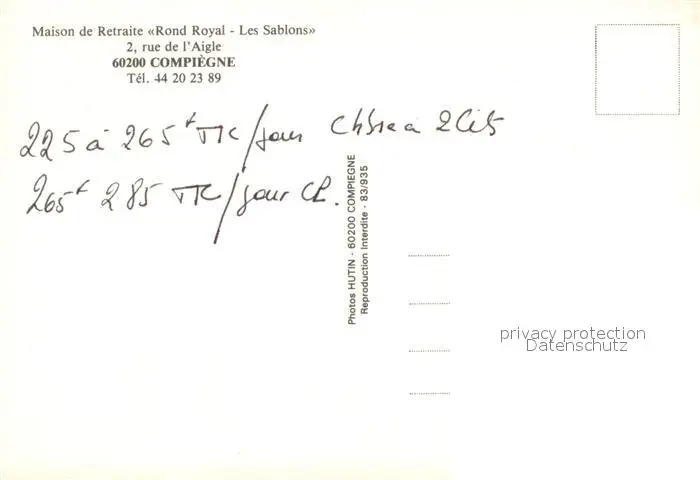 Maison de Retraite «Rond Royal - Les Sablons»
2, rue de l'Aigle
60200 COMPIÈGNE
Tél. 44 20 23 89
225 à 265 F TTC/jour Chbre à 2 lits
265 F 285 TTC/jour CP.
Photos HUTIN - 60200 COMPIEGNE
Reproduction Interdite - 83/935
privacy protection
Datenschutz